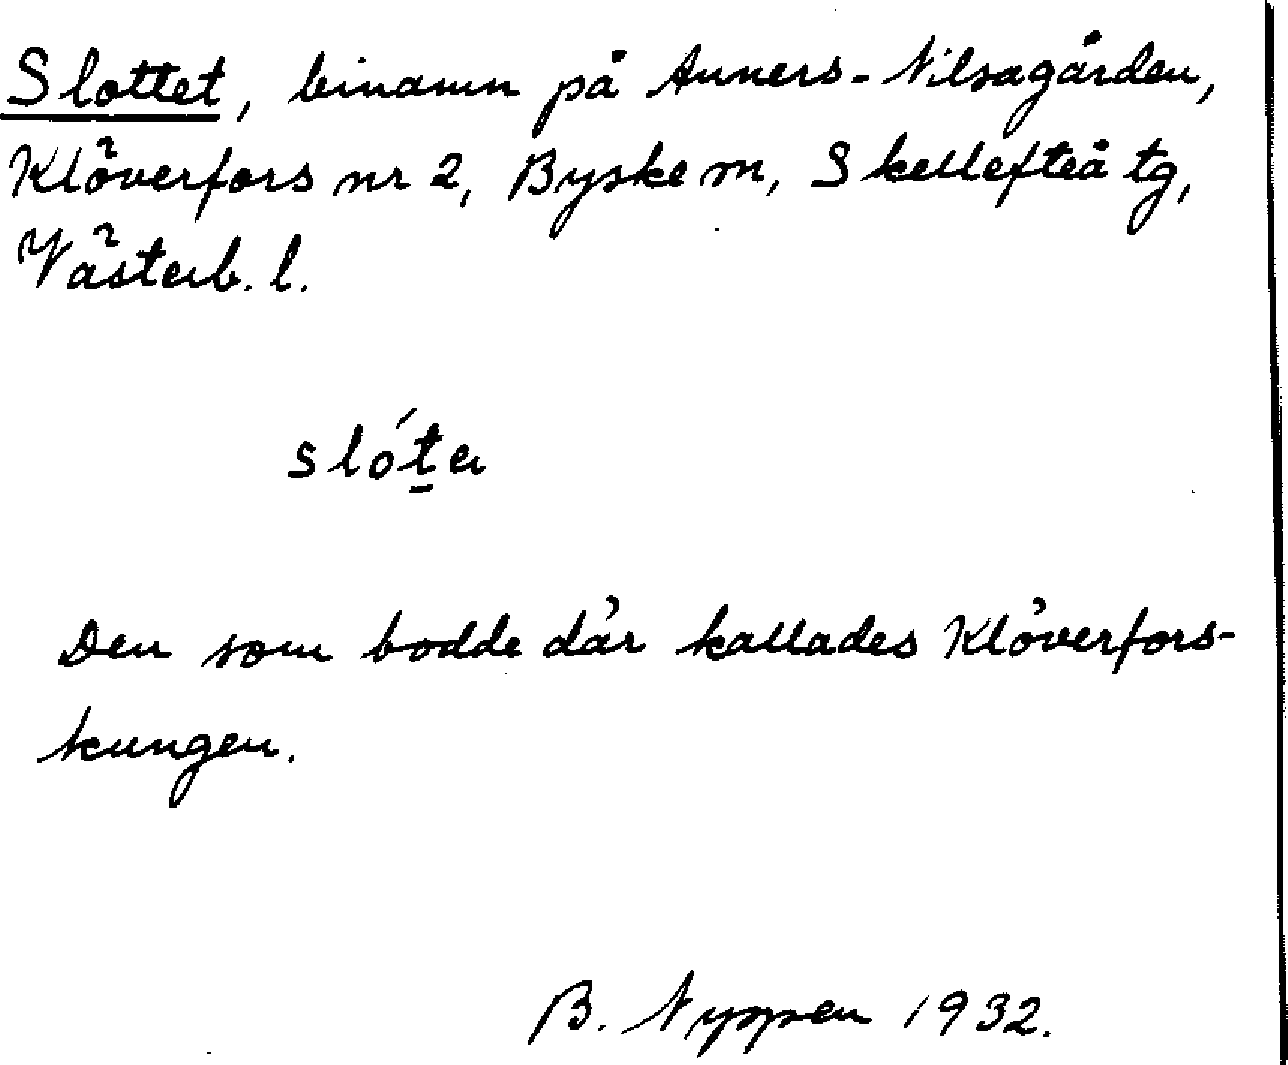 Slottet, binamn på Anners-Nilsagården,
Klöverfors nr 2, Byske sn, Skellefteå tg,
Västerb. l.
slót̠e
Den som bodde där kallades Klöverfors-
kungen.
B. Nyppen 1932.